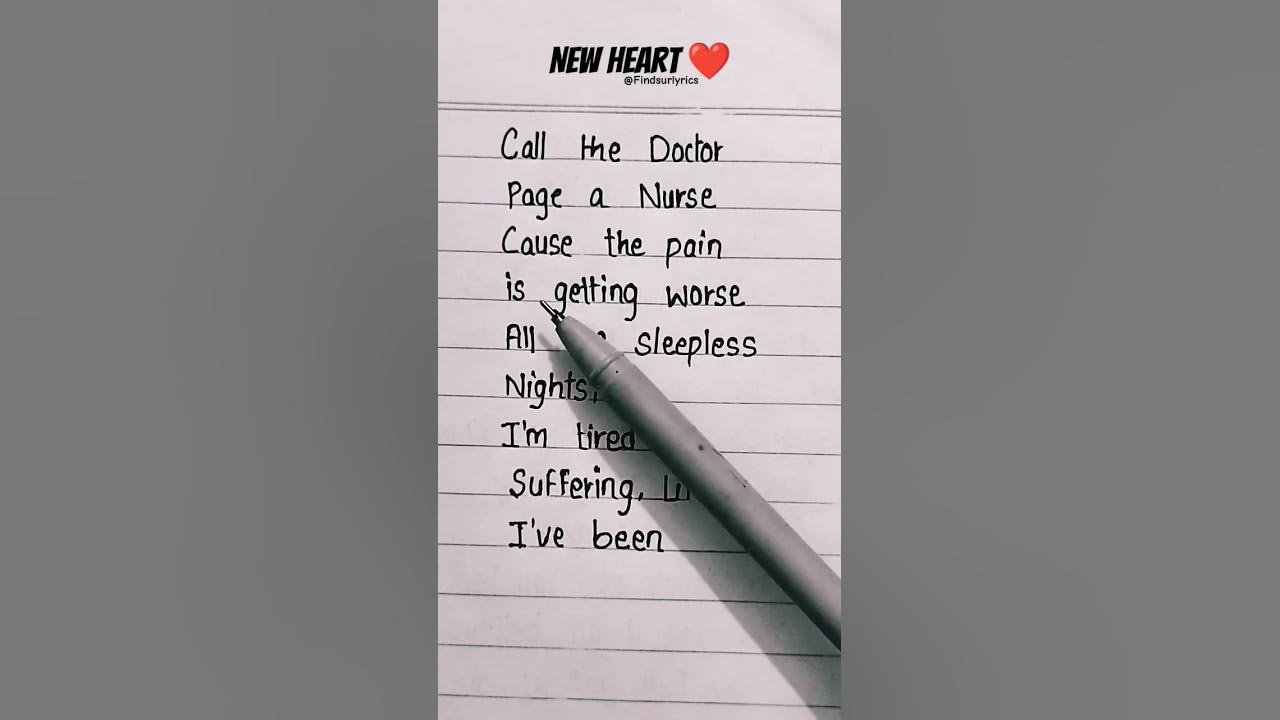 NEW HEART ❤️
@Findsurlyrics
Call the Doctor
Page a Nurse
Cause the pain
is getting worse
All sleepless
Nights,
I'm tired
Suffering,
I've been